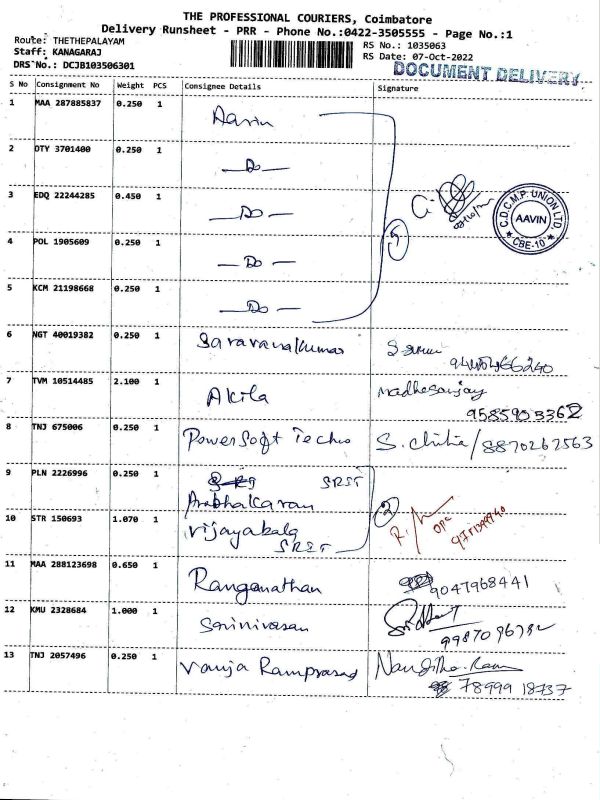 THE PROFESSIONAL COURIERS, Coimbatore
Delivery Runsheet - PRR - Phone No.:0422-3505555 - Page No.:1
Route: THETHEPALAYAM
RS No.: 1035063
Staff: KANAGARAJ
RS Date: 07-Oct-2022
DRS No.: DCJB103506301
DOCUMENT DELIVERY
S No Consignment No Weight PCS Consignee Details Signature
1 MAA 287885837 0.250 1 Aavin
2 DTY 3701400 0.250 1 —Do—
3 EDQ 22244285 0.450 1 —Do—
C.D.C.M.P. UNION LTD.
AAVIN
CBE-10
5
4 POL 1905609 0.250 1 —Do—
5 KCM 21198668 0.250 1 —Do—
6 NGT 40019382 0.250 1 Saravanakumar
7 TVM 10514485 2.100 1 Akila Madhesanjay
9585903362
8 TNJ 675006 0.250 1 Powersoft Techno S. Chitra/8870267563
9 PLN 2226996 0.250 1 SRST
Prabhakaran
2
10 STR 150693 1.070 1 Vijayabala
SRST
11 MAA 288123698 0.650 1 Ranganathan 9047968441
12 KMU 2328684 1.000 1 Srinivasan
13 TNJ 2057496 0.250 1 Vanja Ramprasad Nanditha.Ram
78999 18737